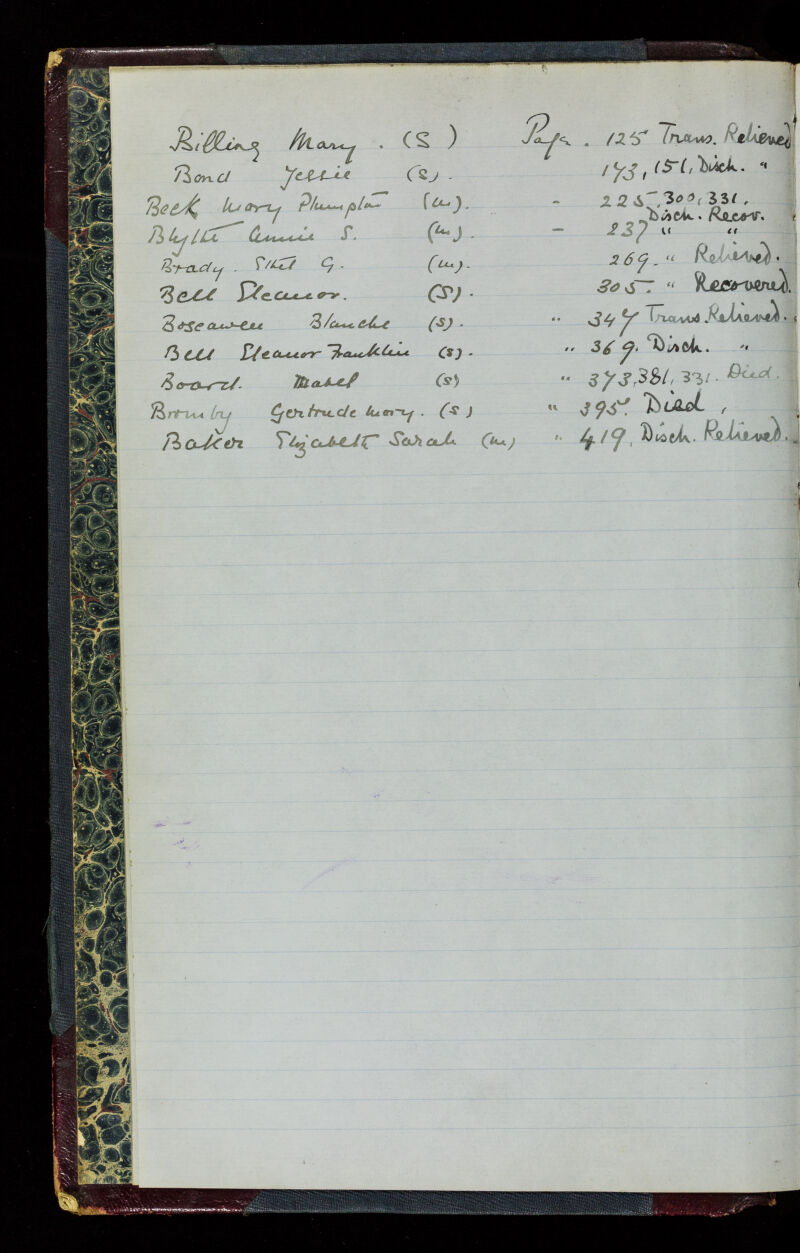 Billing Mary . (S) Page . 125 Trans. Relieved
Bond Jessie (S). 143, 151, Disch. "
Beck Mary Plumpton (m). - 225, 300, 331,
Disch. Recov.
Blyth Annie S. (m). - 237 " "
Brady . Ethel G. (m). 269. " Relieved.
Bell Eleanor. (S). 305. " Recovered.
Boscawen Blanche (S). " 347 Trans. Relieved.
Bell Eleanor Franklin (S). " 369. Disch. "
Board. Mabel (S) " 373, 381, 331. Died.
Bromby Gertrude Mary. (S) " 395. Died ,
Baker Elizabeth Sarah (m) " 419, Disch. Relieved.